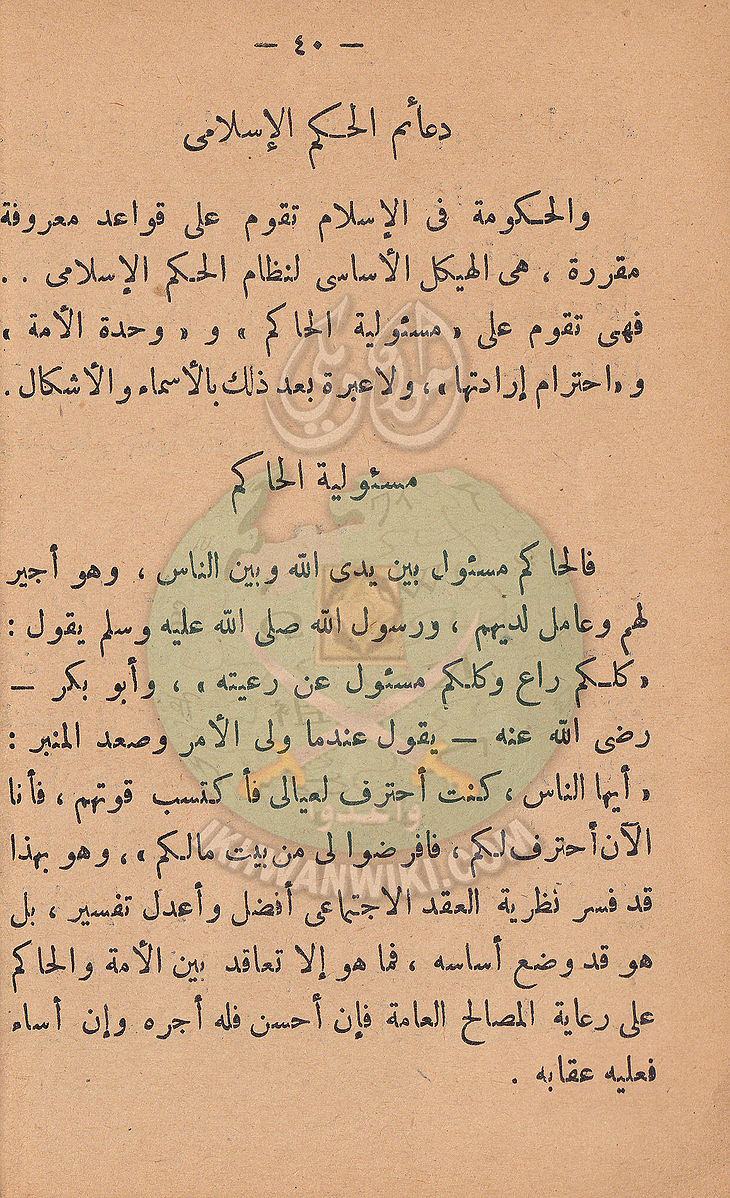 — ٤٠ —
دعائم الحكم الإسلامى
والحكومة فى الإسلام تقوم على قواعد معروفة
مقررة ، هى الهيكل الأساسى لنظام الحكم الإسلامى . .
فهى تقوم على « مسئولية الحاكم » و « وحدة الأمة »
و « احترام إرادتها » ، ولا عبرة بعد ذلك بالأسماء والأشكال .
مسئولية الحاكم
فالحاكم مسئول بين يدى الله وبين الناس ، وهو أجير
لهم وعامل لديهم ، ورسول الله صلى الله عليه وسلم يقول :
« كلكم راع وكلكم مسئول عن رعيته » ، وأبو بكر —
رضى الله عنه — يقول عندما ولى الأمر وصعد المنبر :
« أيها الناس ، كنت أحترف لعيالى فأكتسب قوتهم ، فأنا
الآن أحترف لكم ، فافرضوا لى من بيت مالكم » ، وهو بهذا
قد فسر نظرية العقد الاجتماعى أفضل وأعدل تفسير ، بل
هو قد وضع أساسه ، فما هو إلا تعاقد بين الأمة والحاكم
على رعاية المصالح العامة فإن أحسن فله أجره وإن أساء
فعليه عقابه .
وأعدوا
IKHWANWIKI.COM